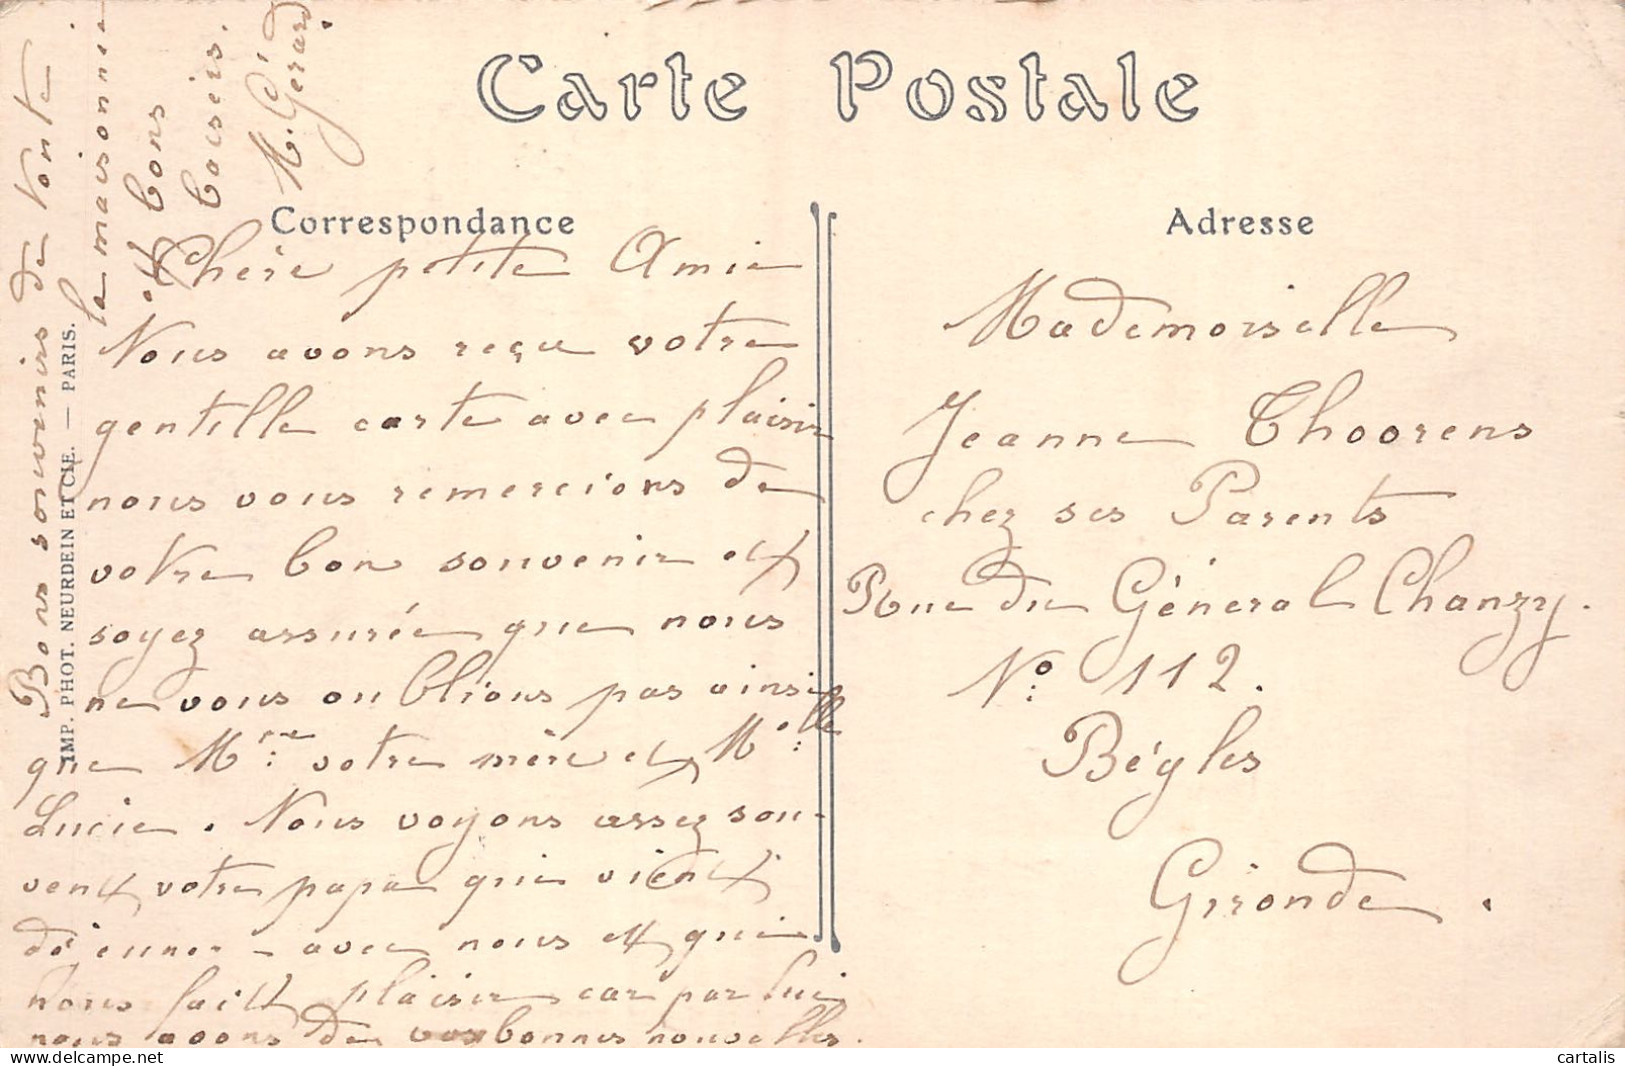 Carte Postale
Correspondance
Adresse
Chère petite Amie
Nous avons reçu votre
gentille carte avec plaisir
nous vous remercions de
votre bon souvenir et
soyez assurée que nous
ne vous oublions pas ainsi
que Mme votre mère et Melle
Lucie. Nous voyons assez sou-
vent votre papa qui vient
déjeuner - avec nous et qui
nous fait plaisir car par lui
nous avons de vos bonnes nouvelles.
Bons souvenirs de toute
la maisonnée
et bons
baisers.
M. Gérard
Mademoiselle
Jeanne Thoorens
chez ses Parents
Rue du Général Chanzy.
No: 112.
Bégles
Gironde.
IMP. PHOT. NEURDEIN ET CIE. — PARIS.
cartalis